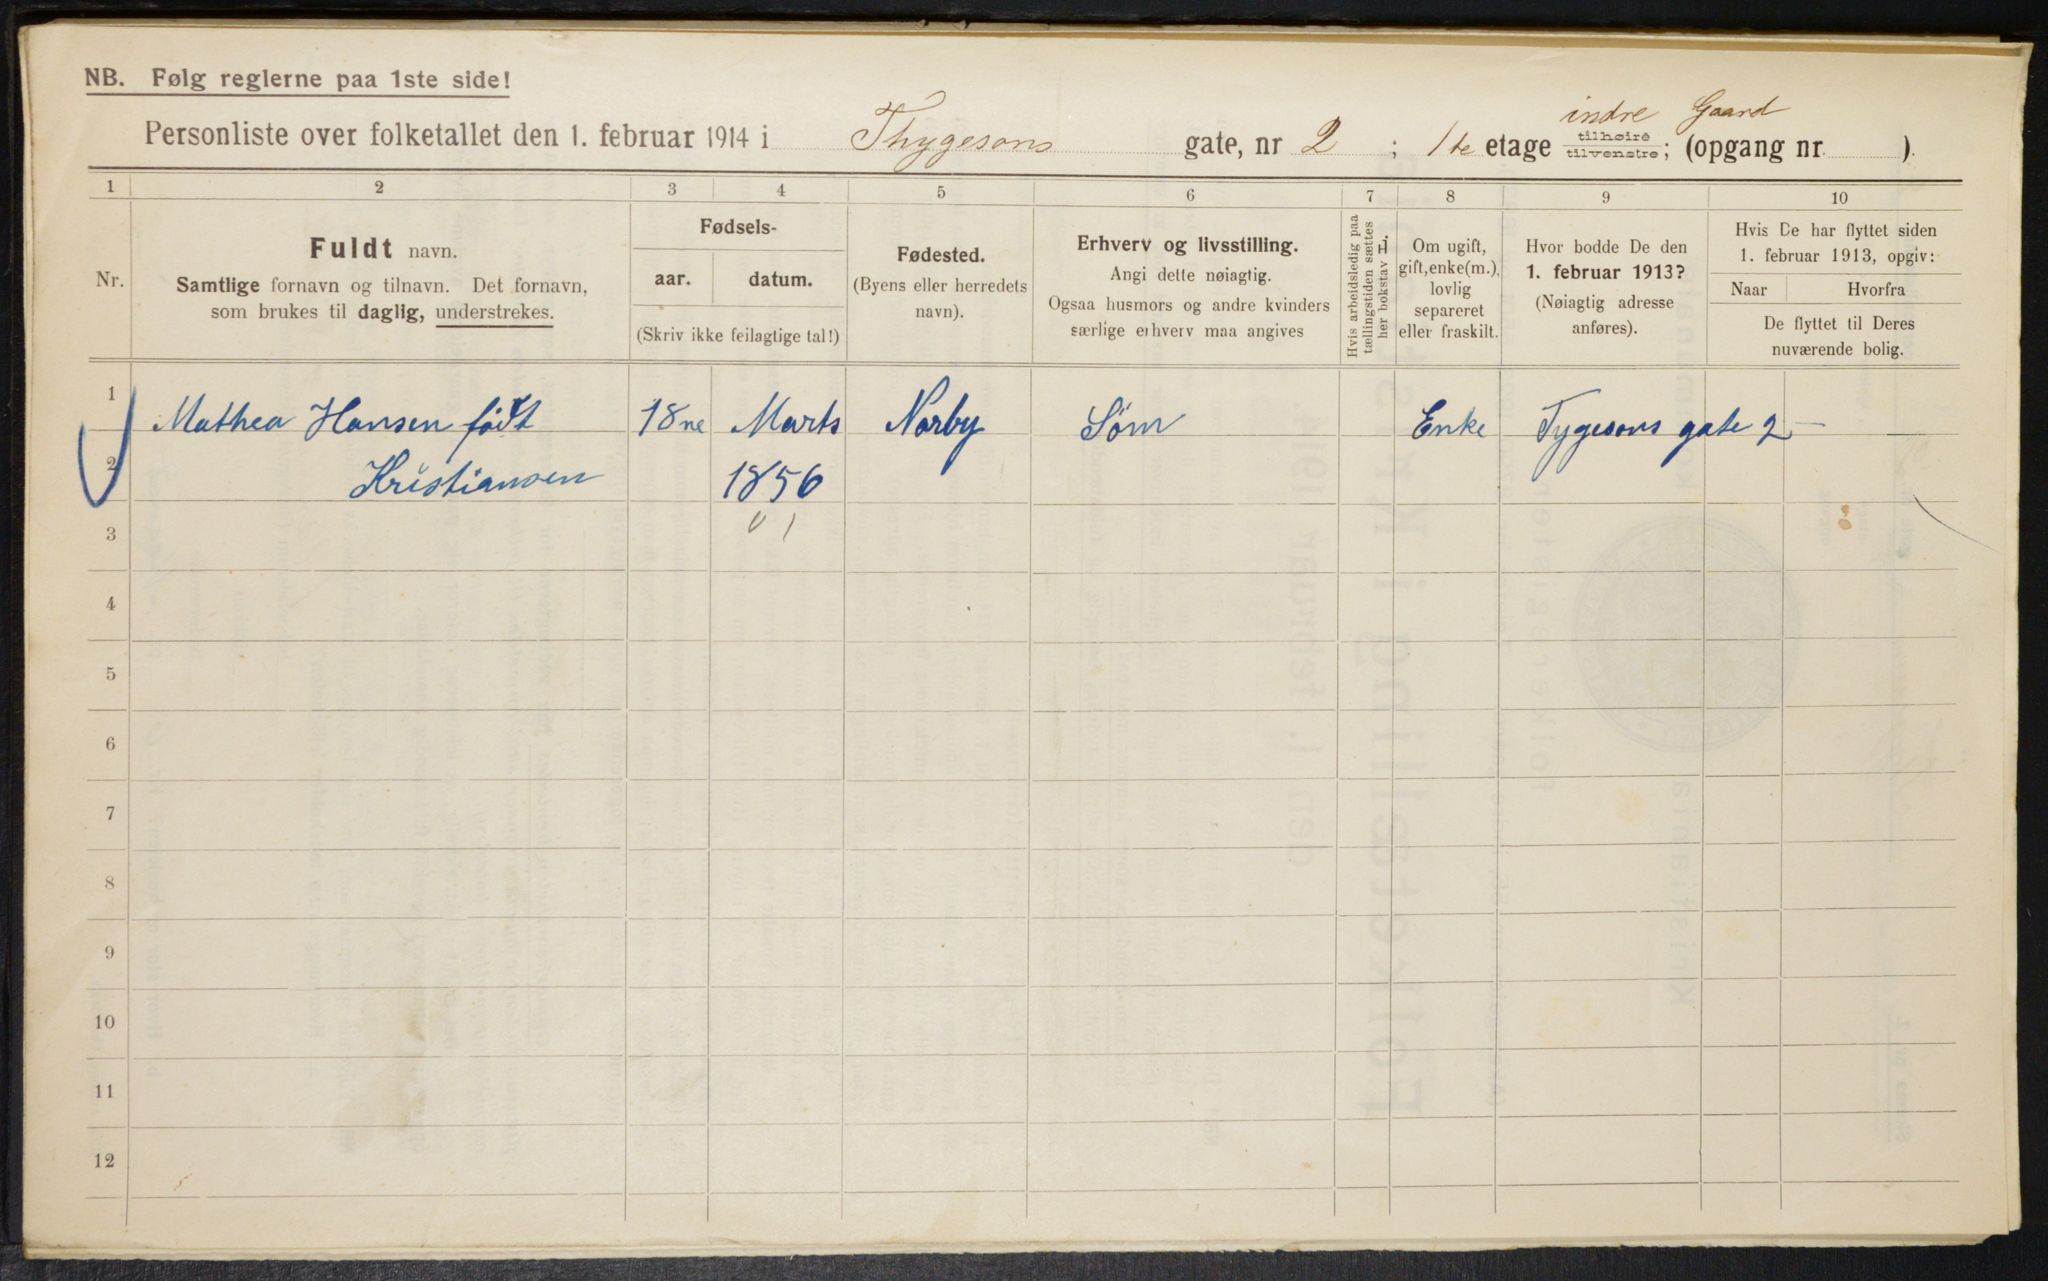 NB. Følg reglerne paa 1ste side!
indre Gaard
Personliste over folketallet den 1. februar 1914 i Thygesons gate, nr 2 ; 1te etage tilhøire tilvenstre; (opgang nr. ).
1 2 3 4 5 6 7 8 9 10
Nr.
Fuldt navn.
Samtlige fornavn og tilnavn. Det fornavn,
som brukes til daglig, understrekes.
Fødsels-
aar. datum.
(Skriv ikke feilagtige tal!)
Fødested.
(Byens eller herredets
navn).
Erhverv og livsstilling.
Angi dette nøiagtig.
Ogsaa husmors og andre kvinders
særlige erhverv maa angives
Hvis arbeidsledig paa
tællingstiden sættes
her bokstav L.
Om ugift,
gift, enke(m.),
lovlig
separeret
eller fraskilt.
Hvor bodde De den
1. februar 1913?
(Nøiagtig adresse
anføres).
Hvis De har flyttet siden
1. februar 1913, opgiv:
Naar Hvorfra
De flyttet til Deres
nuværende bolig.
1 Mathea Hansen født 18ne Marts Norby Søm Enke Tygesons gate 2
2 Kristiansen 1856
3
4
5
6
7
8
9
10
11
12